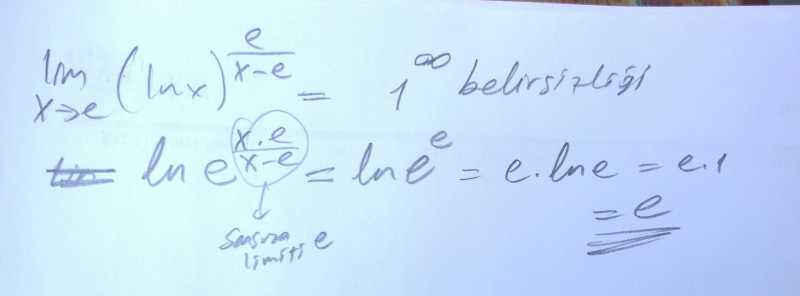 lim x→e (ln x)^(e/(x-e)) = 1^∞ belirsizliği
ln e^((x.e)/(x-e)) = ln e^e = e.ln e = e.1
= e
limiti e